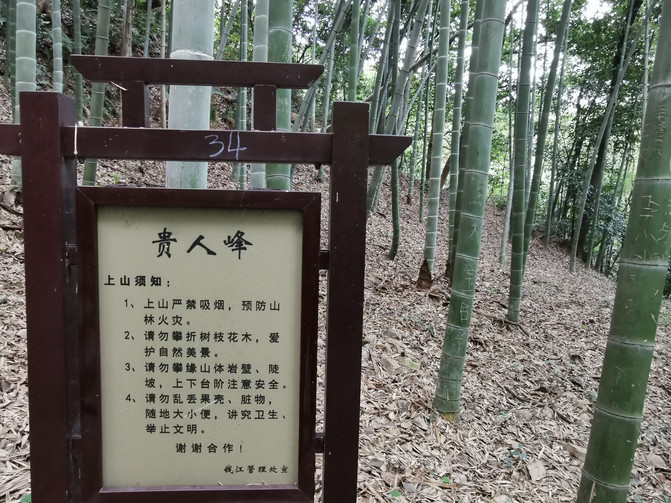 34
贵人峰
上山须知：
1、上山严禁吸烟，预防山
林火灾。
2、请勿攀折树枝花木，爱
护自然美景。
3、请勿攀缘山体岩壁、陡
坡，上下台阶注意安全。
4、请勿乱丢果壳、脏物，
随地大小便，讲究卫生、
举止文明。
谢谢合作！
钱江管理处宣